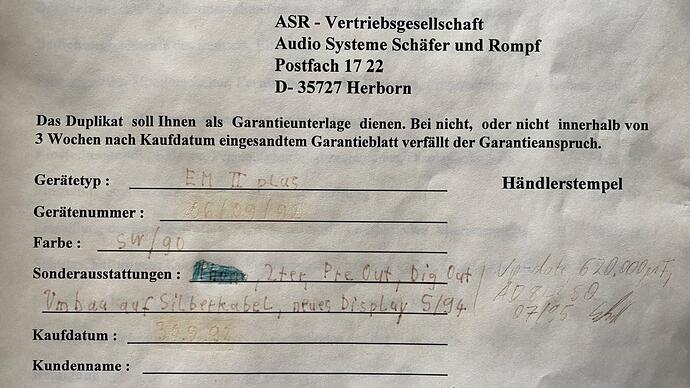 ASR - Vertriebsgesellschaft
Audio Systeme Schäfer und Rompf
Postfach 17 22
D- 35727 Herborn
Das Duplikat soll Ihnen als Garantieunterlage dienen. Bei nicht, oder nicht innerhalb von
3 Wochen nach Kaufdatum eingesandtem Garantieblatt verfällt der Garantieanspruch.
Gerätetyp : EM II plus
Händlerstempel
Gerätenummer : 06/09/92
Farbe : sw/90
Sonderausstattungen : 2ter, Pre Out, Dig Out
Up-date 620.000µF,
Umbau auf Silberkabel, neues Display 5/94
07/95
Kaufdatum : 30.9.92
Kundenname :